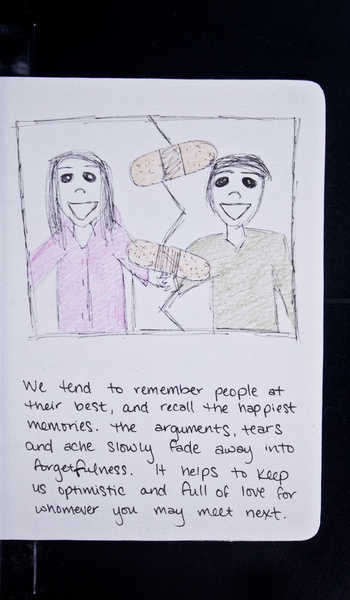 We tend to remember people at
their best, and recall the happiest
memories. The arguments, tears
and ache slowly fade away into
forgetfulness. It helps to keep
us optimistic and full of love for
whomever you may meet next.